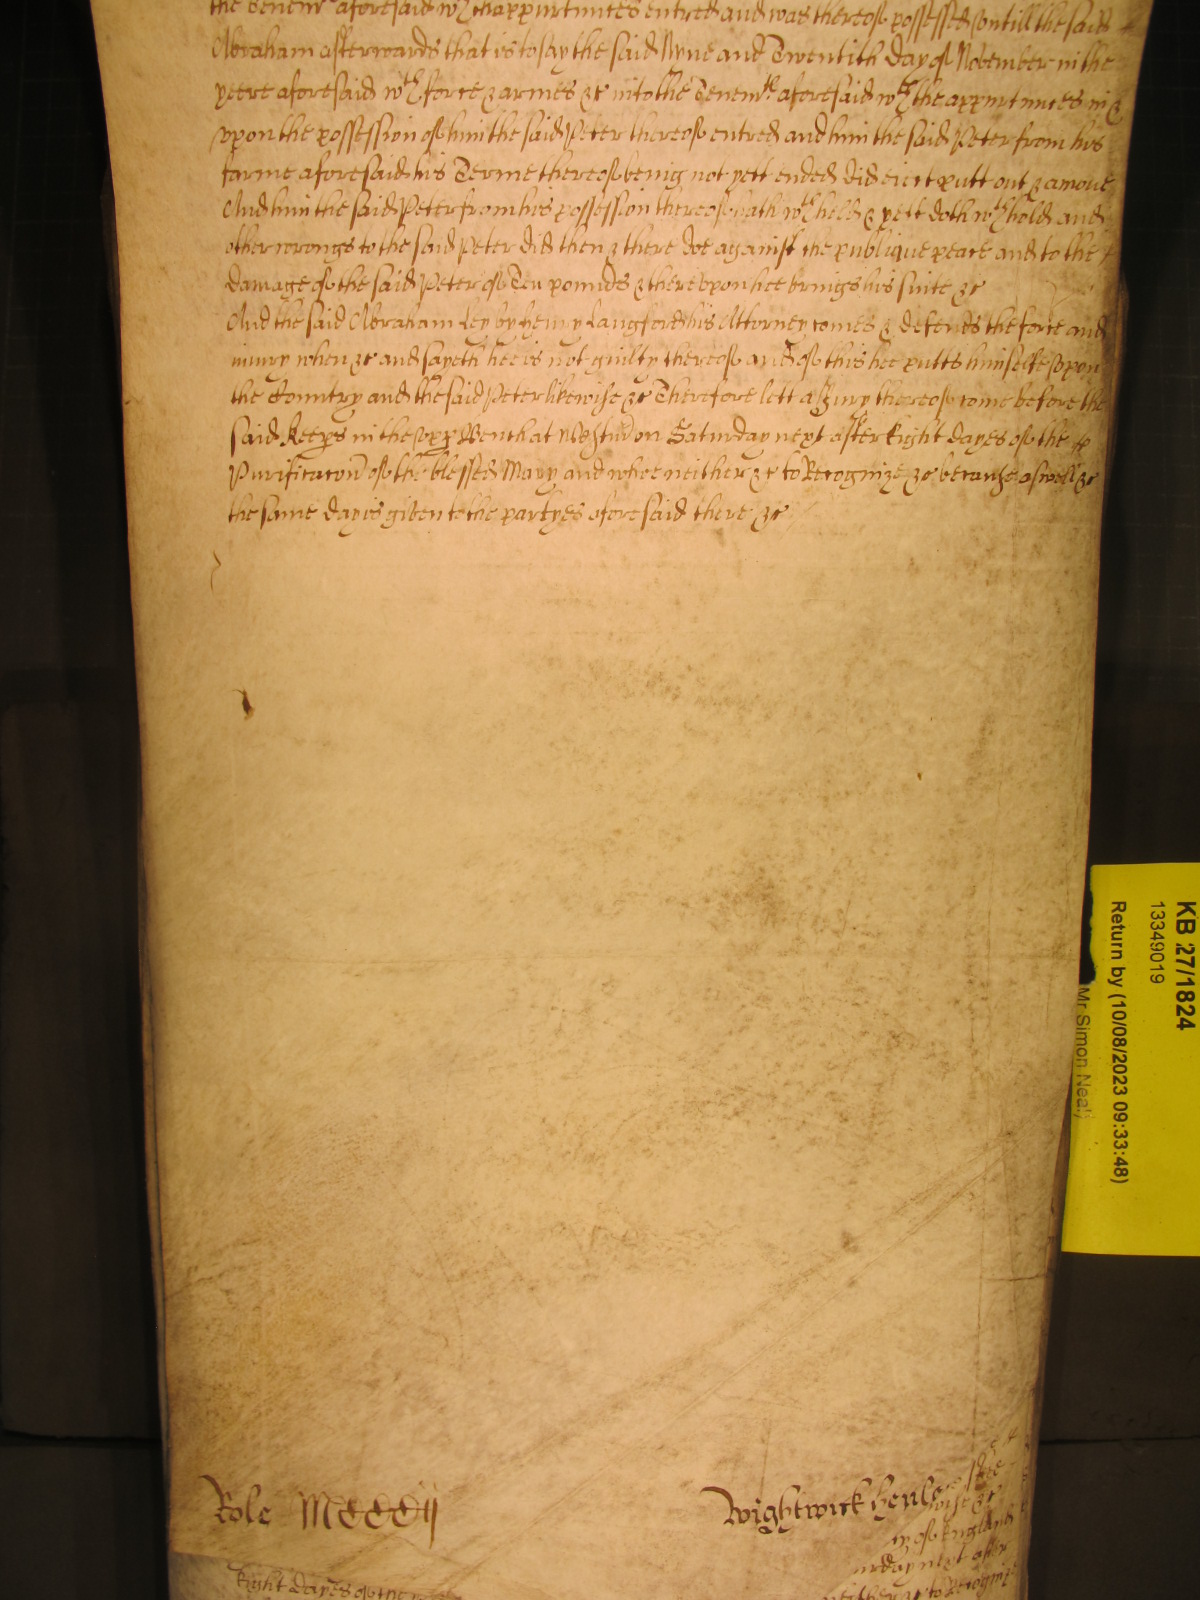 the Tenemts aforesaid wth thappurtnnces entred and was thereof possessed untill the said
Abraham afterwards that is to say the said Nyne and Twentith day of November in the
yeere aforesaid wth force & armes &c into the Tenemts aforesaid wth the appurtnnces in &
upon the possession of him the said Peter thereof entred and him the said Peter from his
farme aforesaid his Terme thereof being not yett ended did eiect putt out & amove
And him the said Peter from his possession thereof hath wthheld & yett doth wthhold and
other wrongs to the said Peter did then & there doe against the publique peace and to the
damage of the said Peter of Ten pounds & thereupon hee brings his suite &c
And the said Abraham Ley by Henry Langford his Attorney comes & defends the force and
iniury when &c and sayeth hee is not guilty thereof and of this hee putts himselfe upon
the Country and the said Peter likewise &c Therefore lett a Jury thereof come before the
said Keeps in the upp Bench at Westm on Saturday next after Eight dayes of the
Purificacon of the blessed Mary and whoe neither &c to Recognize &c because aswell &c
the same day is given to the partyes aforesaid there &c
Role MCCCCij
Wightwick Henle
wise &c
of England
urday next after
Eight dayes of the
neither &c to Recogni
KB 27/1824
13349019
Return by (10/08/2023 09:33:48)
Mr Simon Neal)